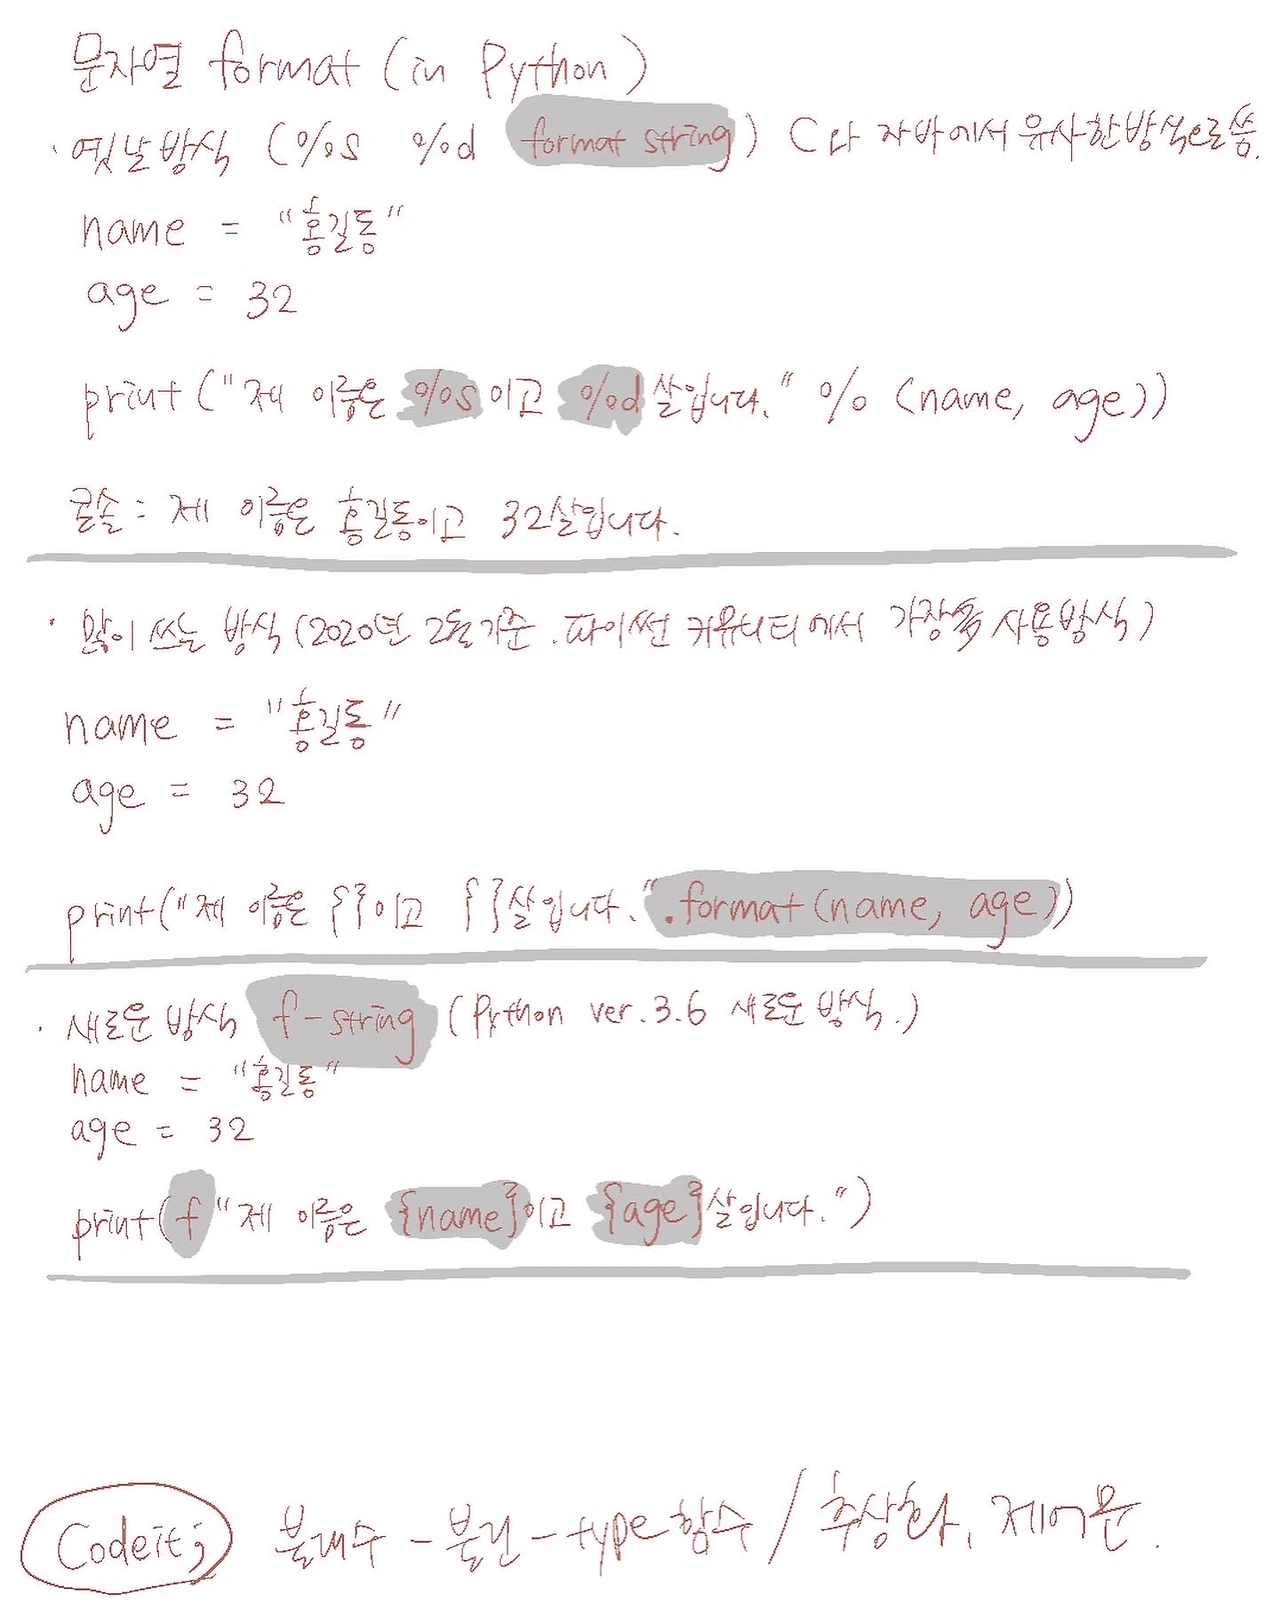 문자열 format (in Python)
· 옛날 방식 (%s %d format string) C나 자바에서 유사한 방식으로 씀.
name = "홍길동"
age = 32
print("제 이름은 %s이고 %d살입니다." % (name, age))
콘솔 = 제 이름은 홍길동이고 32살입니다.
· 많이 쓰는 방식 (2020년 2월 기준. 파이썬 커뮤니티에서 가장 사용방식)
name = "홍길동"
age = 32
print("제 이름은 {}이고 {}살입니다.".format(name, age))
· 새로운 방식 f-string (Python ver.3.6 새로운 방식.)
name = "홍길동"
age = 32
print(f"제 이름은 {name}이고 {age}살입니다.")
Codeit; 불대수 - 불린 - type 함수 / 추상화, 제어문.